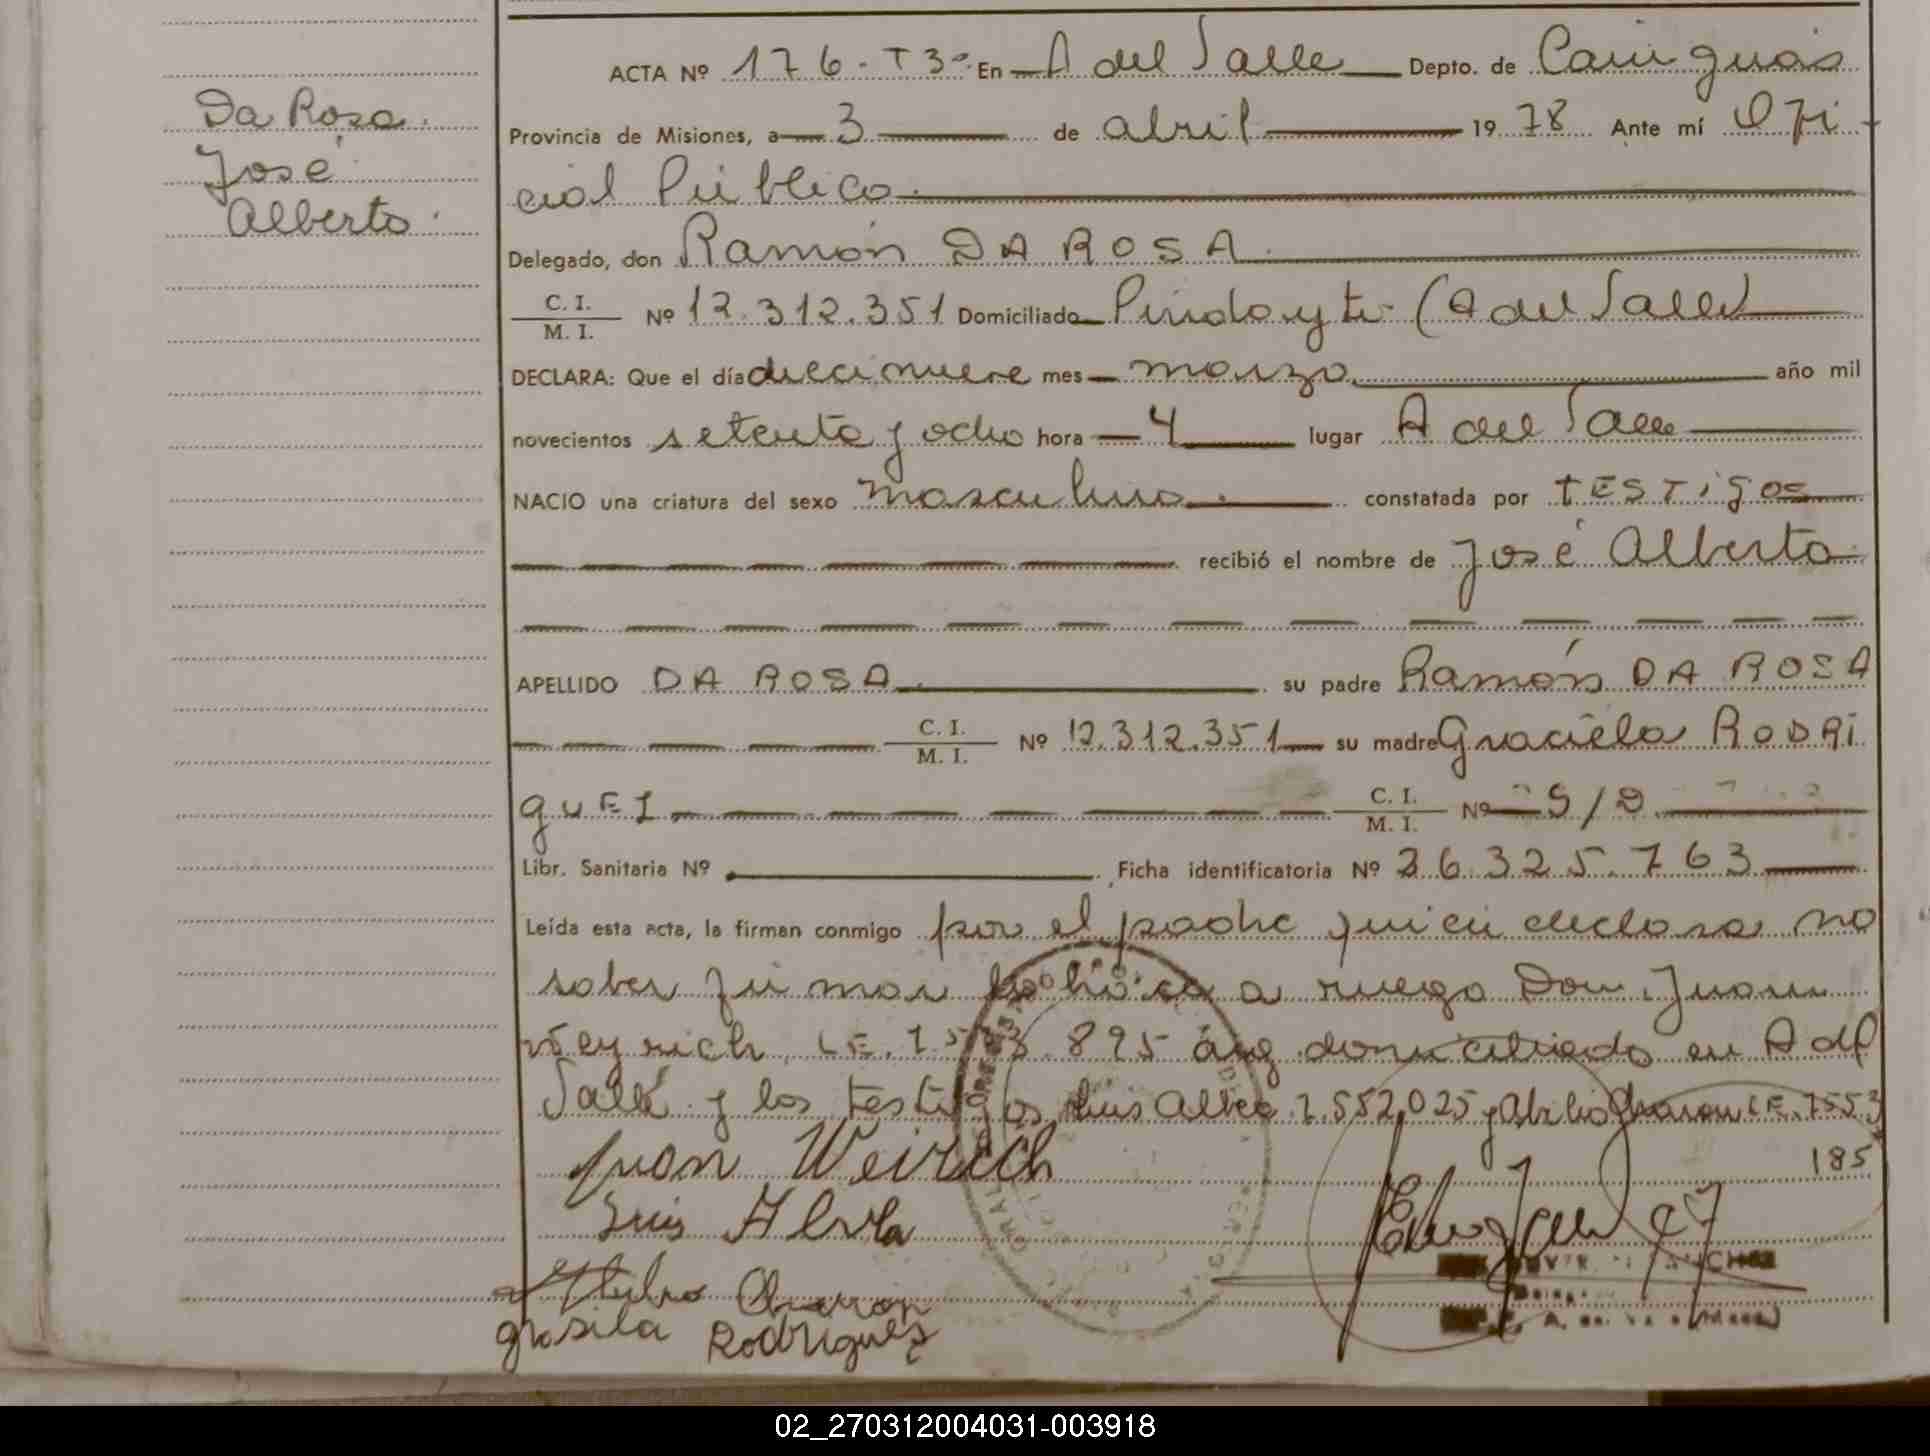 Da Rosa.
José
Alberto.
ACTA Nº 176-T3º En A del Valle Depto. de Cainguás
Provincia de Misiones, a 3 de abril 1978 Ante mí Ofi
cial Público.
Delegado, don Ramón DA ROSA.
C. I.
M. I. Nº 12.312.351 Domiciliado Pindayti (A del Valle)
DECLARA: Que el día diecinueve mes marzo año mil
novecientos setenta y ocho hora 4 lugar A del Valle
NACIO una criatura del sexo masculino. constatada por TESTigos
recibió el nombre de José Alberto
APELLIDO DA ROSA. su padre Ramón DA ROSA
C. I.
M. I. Nº 12.312.351 su madre Graciela RODRI
guEZ C. I.
M. I. Nº S/D
Libr. Sanitaria Nº Ficha identificatoria Nº 26.325.763
Leída esta acta, la firman conmigo por el padre quien declara no
saber firmar a ruego Don Juan
Weyrich LE. 7.5 3.895 arg domiciliado en A del
Valle y los testigos Luis 7.552.025 y LE. 7553
185
Juan Weirich
Luis
Charron
grasiela Rodriguez
02_270312004031-003918